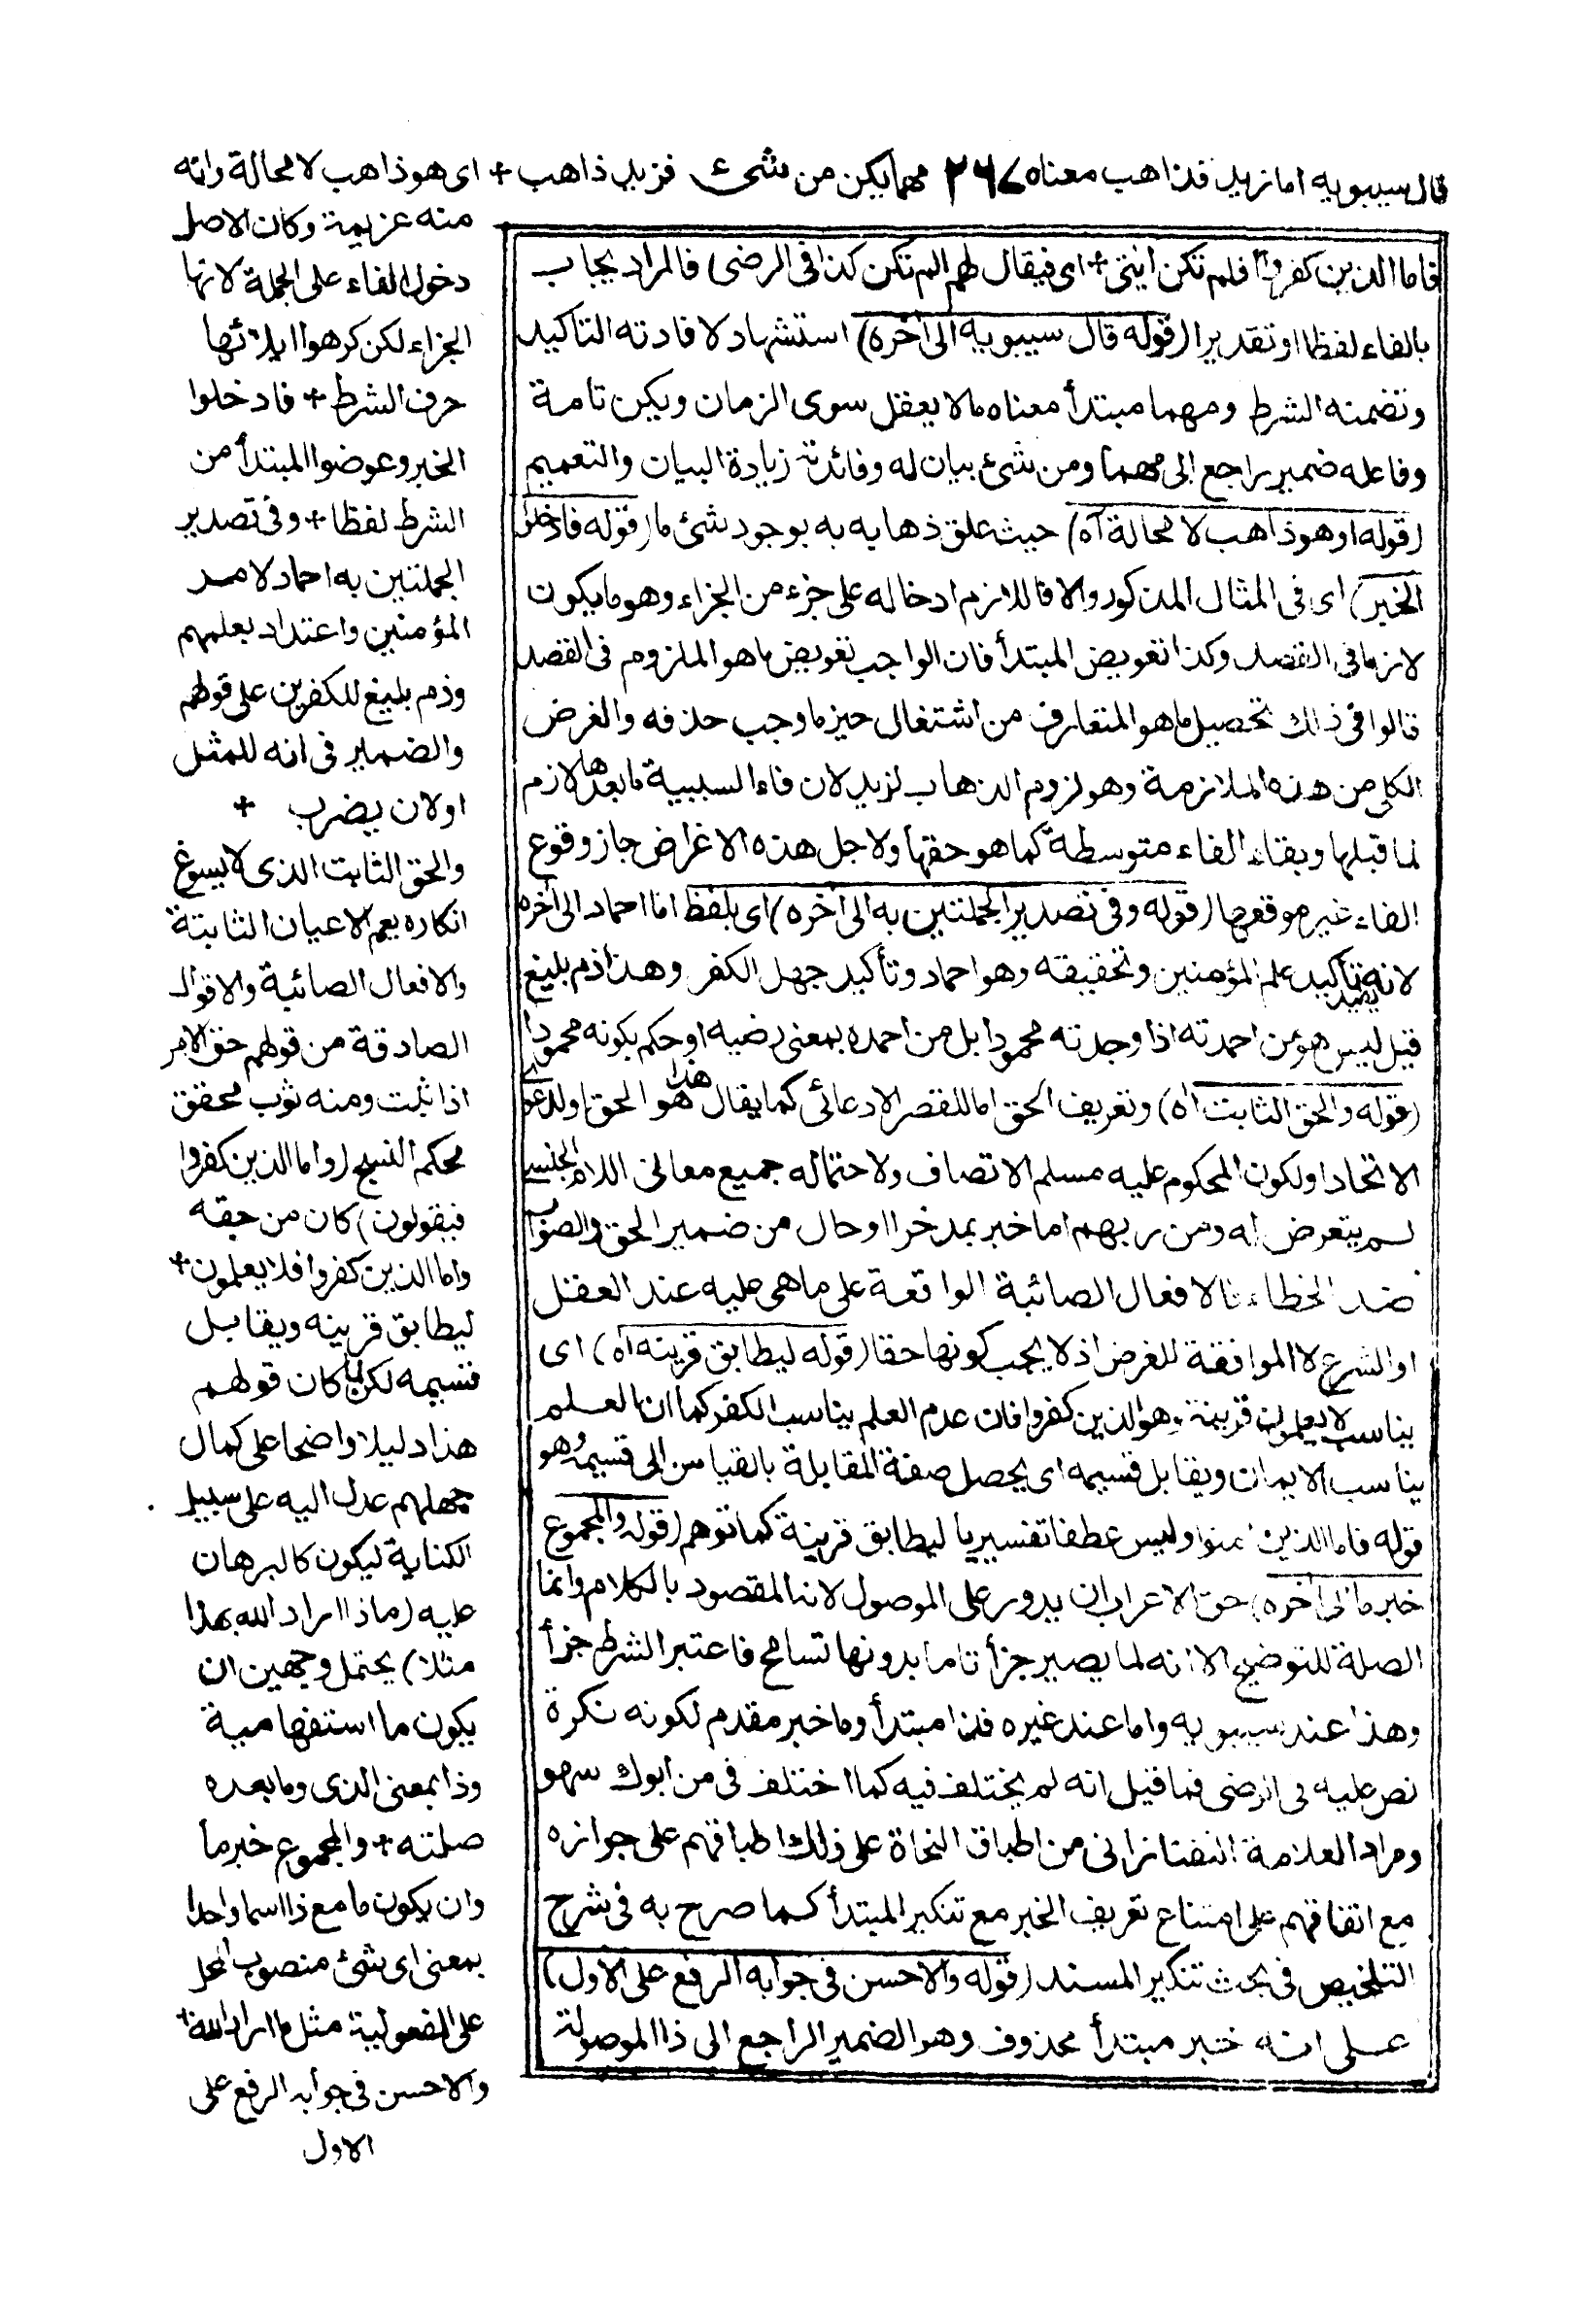 قال سيبويه اما زيد فذاهب معناه ٢٦٧ مهما يكن من شئ فزيد ذاهب + اى هو ذاهب لا محالة وانه
منه عزيمة وكان الاصل
دخول الفاء على الجملة لانها
الجزاء لكن كرهوا ايلائها
حرف الشرط + فادخلوا
الخبر وعوضوا المبتدأ من
الشرط لفظا + وفى تصدير
الجملتين به احماد لامر
المؤمنين واعتداد بعلمهم
وذم بليغ للكفرين على قولهم
والضمير فى انه للمثل
او لان يضرب +
والحق الثابت الذى لا يسوغ
انكاره يعم الاعيان الثابتة
والافعال الصائبة والاقوال
الصادقة من قولهم حق الامر
اذا ثبت ومنه ثوب محقق
محكم النسج (واما الذين كفروا
فيقولون) كان من حقه
واما الذين كفروا فلا يعلمون +
ليطابق قرينه ويقابل
قسيمه لكن لما كان قولهم
هذا دليلا واضحا على كمال
جهلهم عدل اليه على سبيل
الكناية ليكون كالبرهان
عليه (ماذا اراد الله بهذا
مثلا) يحتمل وجهين ان
يكون ما استفهامية
وذا بمعنى الذى وما بعده
صلته + والمجموع خبر ما
وان يكون ما مع ذا اسما واحدا
بمعنى اى شئ منصوب المحل
على المفعولية مثل ما اراد الله +
والاحسن فى جوابه الرفع على
الاول
فاما الذين كفروا افلم تكن ايتى + اى فيقال لهم الم تكن كذا فى الرضى فالمراد يجاب
بالفاء لفظا او تقديرا (قوله قال سيبويه الى اخره) استشهاد لافادته التاكيد
وتضمنه الشرط ومهما مبتدأ معناه ما لا يعقل سوى الزمان ويكن تامة
وفاعله ضمير راجع الى مهما ومن شئ بيان له وفائدته زيادة البيان والتعميم
(قوله او هو ذاهب لا محالة اه) حيث علق ذهابه به بوجود شئ ما (قوله فادخلوا
الخبر) اى فى المثال المذكور والا فاللازم ادخاله على جزء من الجزاء وهو ما يكون
لازما فى القصد وكذا تعويض المبتدأ فان الواجب تعويض ما هو الملزوم فى القصد
قالوا فى ذلك تحصيل ما هو المتعارف من اشتغال حيز ما وجب حذفه والغرض
الكلى من هذه الملازمة وهو لزوم الذهاب لزيد لان فاء السببية ما بعدها لازم
لما قبلها وبقاء الفاء متوسطة كما هو حقها ولاجل هذه الاغراض جاز وقوع
الفاء غير موقعها (قوله وفى تصدير الجملتين به الى اخره) اى بلفظ اما احماد الى اخره
لانه يفيد تأكيد علم المؤمنين وتحقيقه وهو احماد وتأكيد جهل الكفر وهذا ذم بليغ
قيل ليس هو من احمدته اذا وجدته محمودا بل من احمده بمعنى رضيه او حكم بكونه محمودا
(قوله والحق الثابت اه) وتعريف الحق اما للقصر الادعائى كما يقال هذا هو الحق او لدعوى
الاتحاد او لكون المحكوم عليه مسلم الاتصاف ولاحتماله جميع معانى اللام الجنسى
لم يتعرض له ومن ربهم اما خبر بعد خبر او حال من ضمير الحق والصواب
ضد الخطاء فالافعال الصائبة الواقعة على ما هى عليه عند العقل
او الشرع لا الموافقة للغرض اذ لا يجب كونها حقا (قوله ليطابق قرينه اه) اى
يناسب لا يعلمون قرينة وهو الذين كفروا فان عدم العلم يناسب الكفر كما ان العلم
يناسب الايمان ويقابل قسيمه اى يحصل صفة المقابلة بالقياس الى قسيمه وهو
قوله فاما الذين امنوا وليس عطفا تفسيريا ليطابق قرينة كما توهم (قوله والمجموع
خبر ما الى اخره) حق الاعراب ان يدور على الموصول لانه المقصود بالكلام وانما
الصلة للتوضيح الا انه لما يصير جزأ تاما بدونها تسامح فاعتبر الشرط جزأ
وهذا عند سيبويه واما عند غيره فذا مبتدأ وما خبر مقدم لكونه نكرة
نص عليه فى الرضى فما قيل انه لم يختلف فيه كما اختلف فى من ابوك سهو
ومراد العلامة التفتازانى من اطباق النحاة على ذلك اطباقهم على جوازه
مع اتفاقهم على امتناع تعريف الخبر مع تنكير المبتدأ كما صرح به فى شرح
التلخيص فى بحث تنكير المسند (قوله والاحسن فى جوابه الرفع على الاول)
على انه خبر مبتدأ محذوف وهو الضمير الراجع الى ذا الموصولة